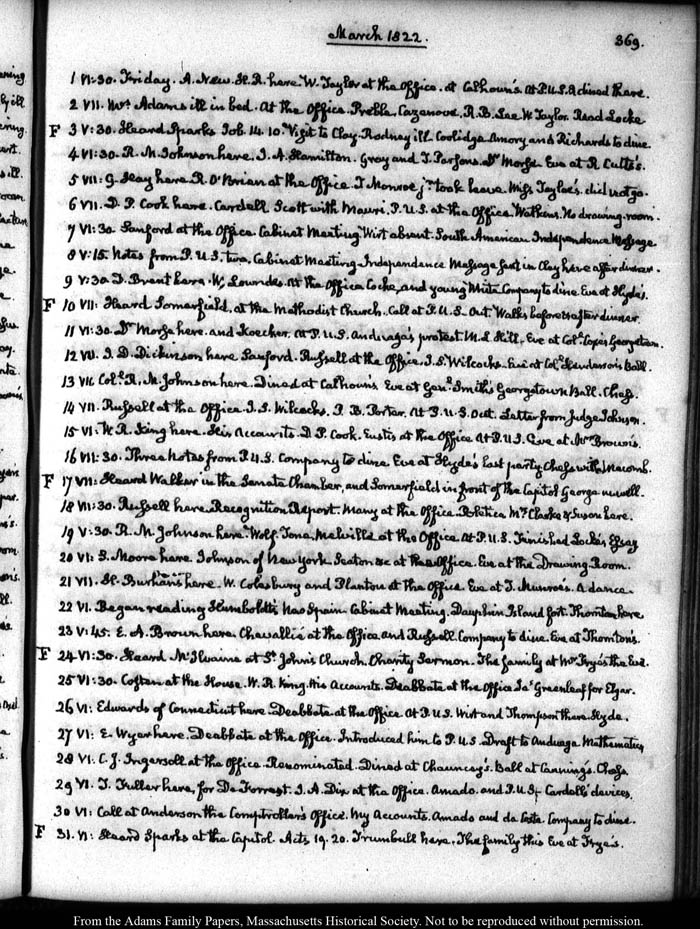 March 1822.
369.
1 VI:30. Friday. A. New. H. R. here W. Taylor at the Office. at Calhoun's. At P.U.S. & dined there.
2 VII. Mrs Adams ill in bed. At the Office. Preble, Cazenove, R. B. Lee W. Taylor. Read Locke
F 3 V:30. Heard Sparks Job. 14. 10. Visit to Clay. Rodney ill. Coolidge Amory and Richards to dine.
4 VI:30. R. M. Johnson here. J. A. Hamilton. Gray and T. Parsons. Dr Morse. Eve at R Cutts's.
5 VII: G. Hay here R. O'Brian at the Office J. Monroe jr. took leave Miss Tayloe's. did not go.
6 VII. D. P. Cook here. Cardell Scott with Mauri. P.U.S. at the Office. Watkins. No drawing-room.
7 VI:30. Sanford at the Office. Cabinet Meeting Wirt absent. South American Independence Message
8 V:15. Notes from P.U.S. two, Cabinet Meeting. Independence Message sent in Clay here after dinner.
9 V:30. D. Brent here. W. Lowndes. At the Office Cocke, and young White Company to dine Eve at Hyde's.
F 10 VII: Heard Somerfield, at the Methodist Church. Call at P.U.S. Out. Walks before & after dinner.
11 VI:30. Dr Morse here. and Koecher. At P.U.S. Anduaga's protest. M. L. Hill. Eve at Col. Coxes Georgetown.
12 VII. J. D. Dickinson here Sanford. Russell at the Office. J. S. Wilcocks. Eve at Col. Henderson's Ball.
13 VII. Col. R. M. Johnson here. Dined at Calhoun's Eve at Genl. Smith's Georgetown Ball. Chess.
14 VII. Russell at the Office. J. S. Wilcocks. P. B. Porter. At P.U.S. Out. Letter from Judge Johnson.
15 VI: W. R. King here. His Accounts. D. P. Cook. Eustis at the Office At P.U.S. Eve at Mrs Brown's.
16 VII:30. Three Notes from P.U.S. Company to dine. Eve at Hyde's last party Chess with Macomb.
F 17 VII: Heard Walker in the Senate Chamber, and Somerfield in front of the Capitol George unwell.
18 VII:30. Russell here. Recognition Report. Many at the Office. Poletica Mrs Clarke & Susan here.
19 V:30. R. M. Johnson here. Wolf. Tone, Melville at the Office At P.U.S. Finished Locke's Essay
20 VI: S. Moore here. Johnson of New York Seaton &c at the Office. Eve at the Drawing Room.
21 VII. H. Burhans here. W. Colesbury and Blanton at the Office. Eve at J. Munroe's. A dance.
22 VI. Began reading Humboldt's New Spain Cabinet Meeting. Dauphin Island fort. Thornton here
23 V:45. E. A. Brown here. Chevallié at the Office and Russell. Company to dine. Eve at Thornton's.
F 24 VI:30. Heard McIlvaine at St. John's Church. Charity Sermon. The family at Mr Frye's the Eve.
25 VI:30. Coften at the House. W. R. King. His Accounts. Deabbate at the Office Jas Greenleaf for Elgar.
26 VI: Edwards of Connecticut here. Deabbate at the Office. At P.U.S. Wirt and Thompson there. Hyde.
27 VI: E. Wyer here. Deabbate at the Office. Introduced him to P.U.S. Draft to Anduaga. Mathematics
28 VI. C. J. Ingersoll at the Office. Renominated. Dined at Chauncey's. Ball at Canning's. Chess.
29 VI. T. Fuller here, for De Forrest. J. A. Dix at the Office. Amado. and P.U.S. Cardell's devices.
30 VI: Call at Anderson the Comptroller's Office. My Accounts. Amado and da Costa. Company to dine.
F 31. VI: Heard Sparks at the Capitol. Acts 19. 20. Trumbull here. The family this Eve at Frye's.
From the Adams Family Papers, Massachusetts Historical Society. Not to be reproduced without permission.